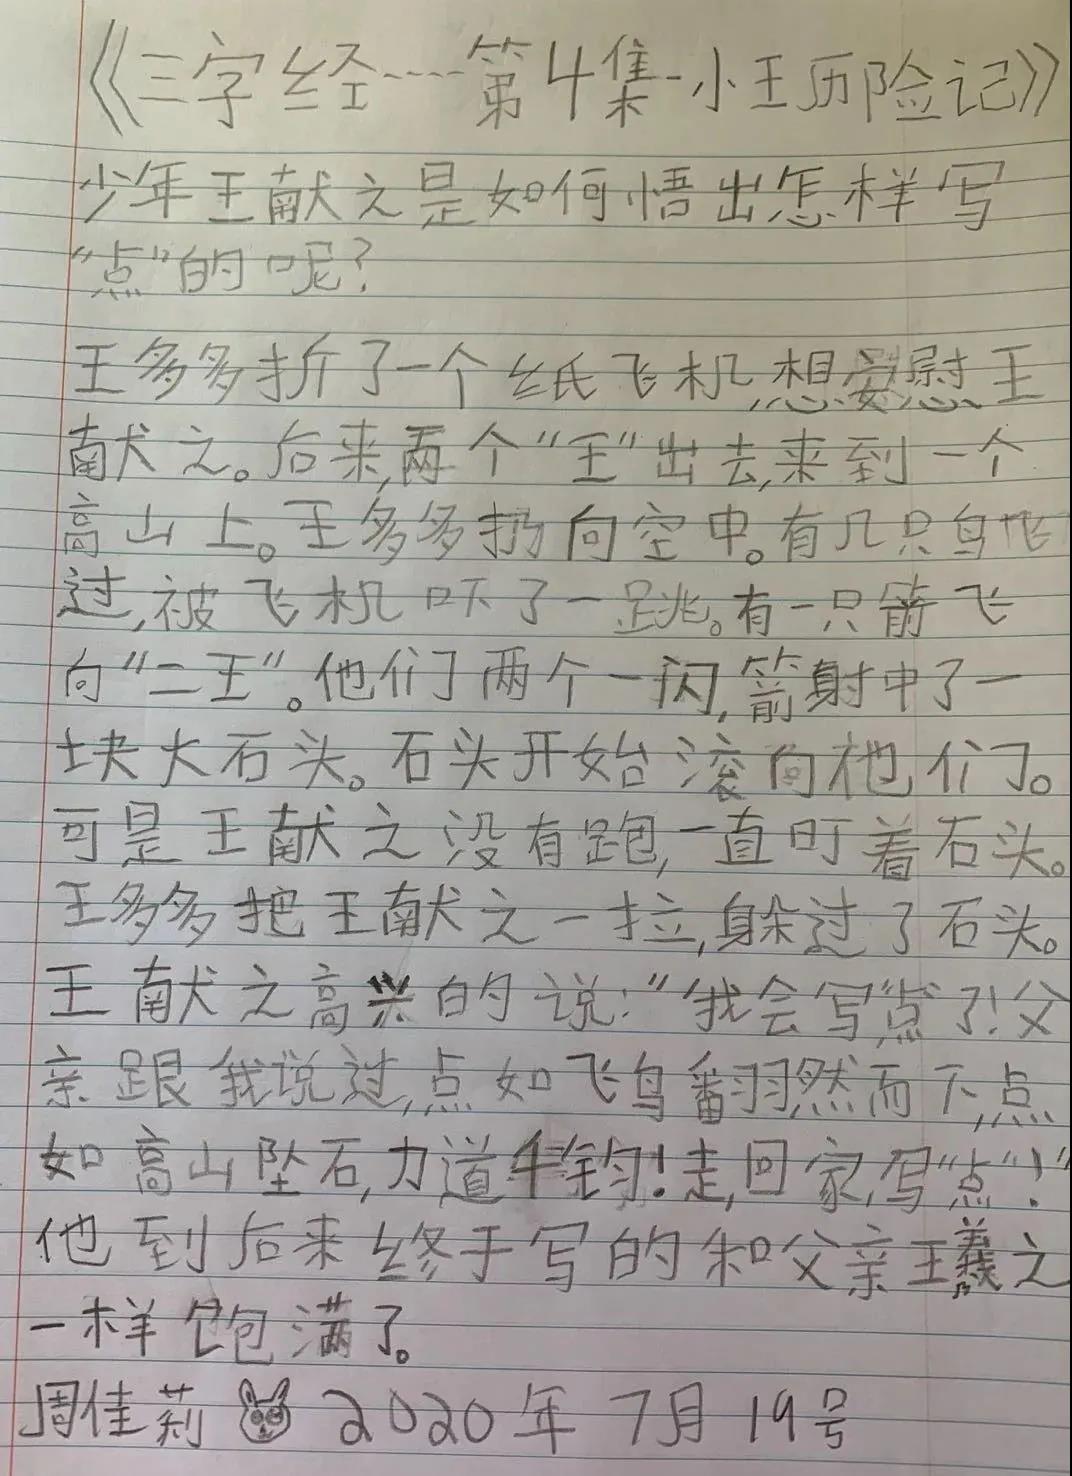 《三字经……第4集-小王历险记》
少年王献之是如何悟出怎样写
“点”的呢?
王多多折了一个纸飞机,想安慰王
献之。后来,两个“王”出去,来到一个
高山上。王多多扔向空中。有几只鸟飞
过,被飞机吓了一跳。有一只箭飞
向“二王”。他们两个一闪,箭射中了一
块大石头。石头开始滚向他们。
可是王献之没有跑,一直盯着石头。
王多多把王献之一拉,躲过了石头。
王献之高兴的说:“我会写“点”了!父
亲跟我说过,点如飞鸟翻羽然而下,点
如高山坠石,力道千钧!走,回家,写“点”!”
他到后来终于写的和父亲王羲之
一样饱满了。
周佳莉 2020年7月19号